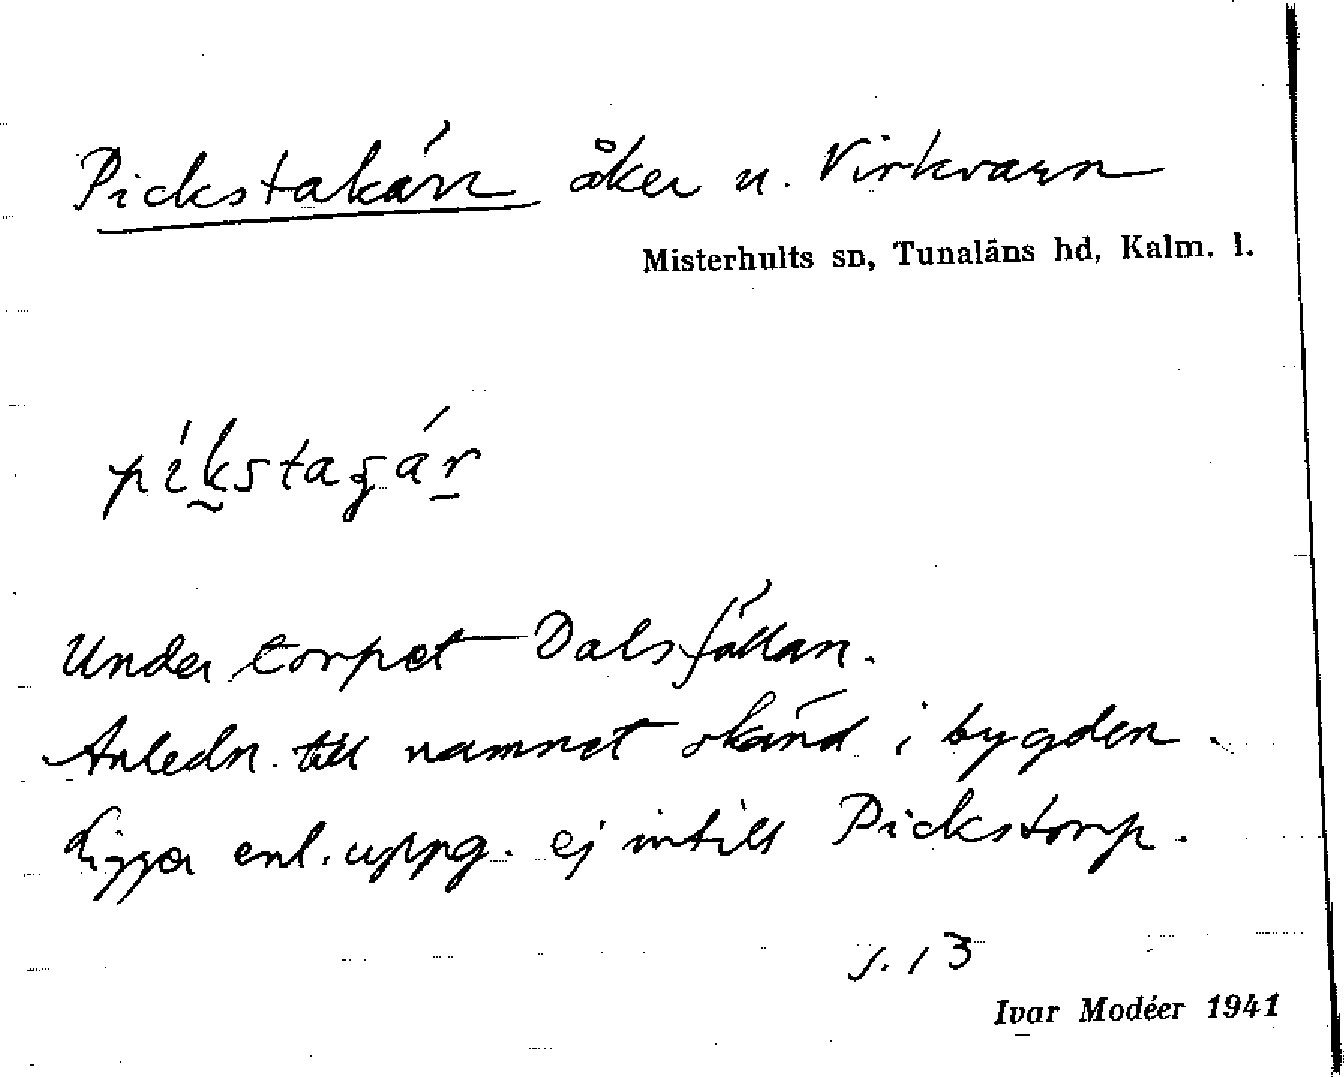 Pickstakärr åker u. Virkvarn
Misterhults sn, Tunaläns hd, Kalm. l.
Under torpet Dalsfällan.
Anledn. till namnet okänd i bygden.
Ligger enl. uppg. ej intill Pickstorp.
s. 13
Ivar Modéer 1941